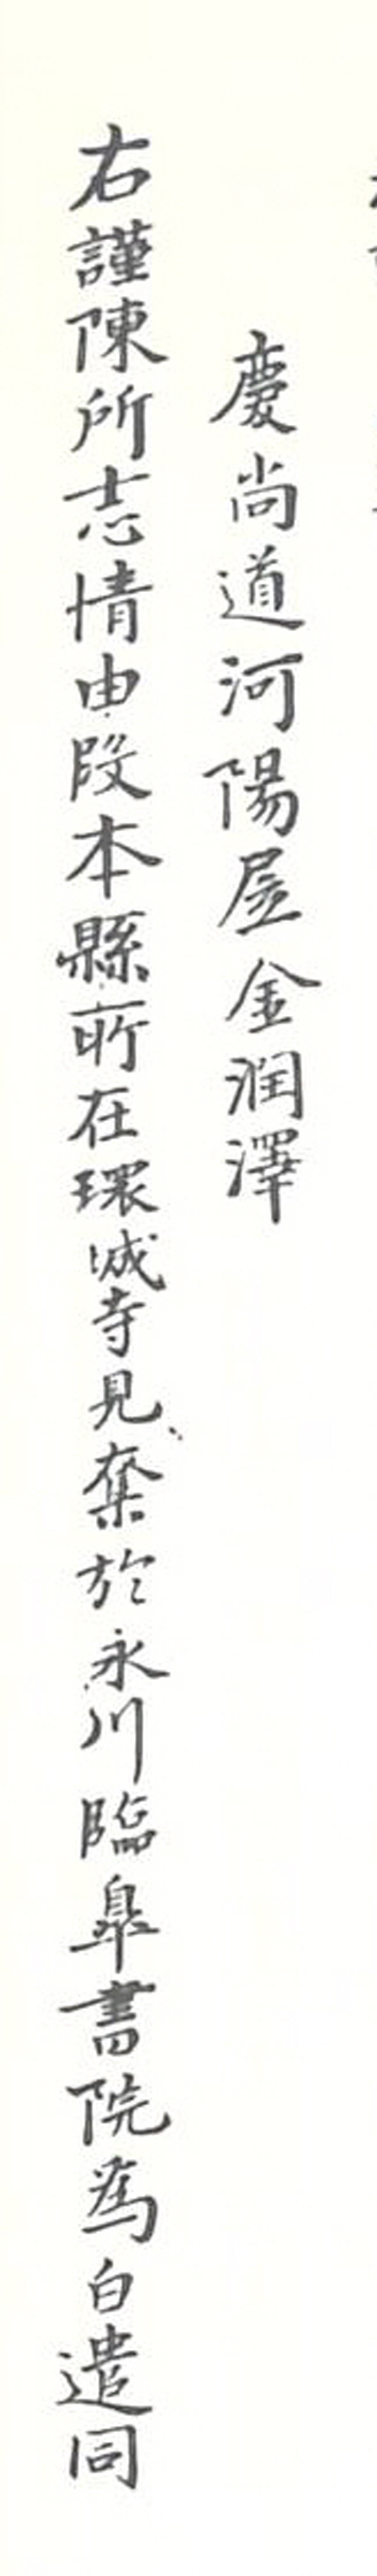 慶尚道河陽居金潤澤
右謹陳所志情由段本縣所在環城寺見奪於永川臨皐書院爲白遣同